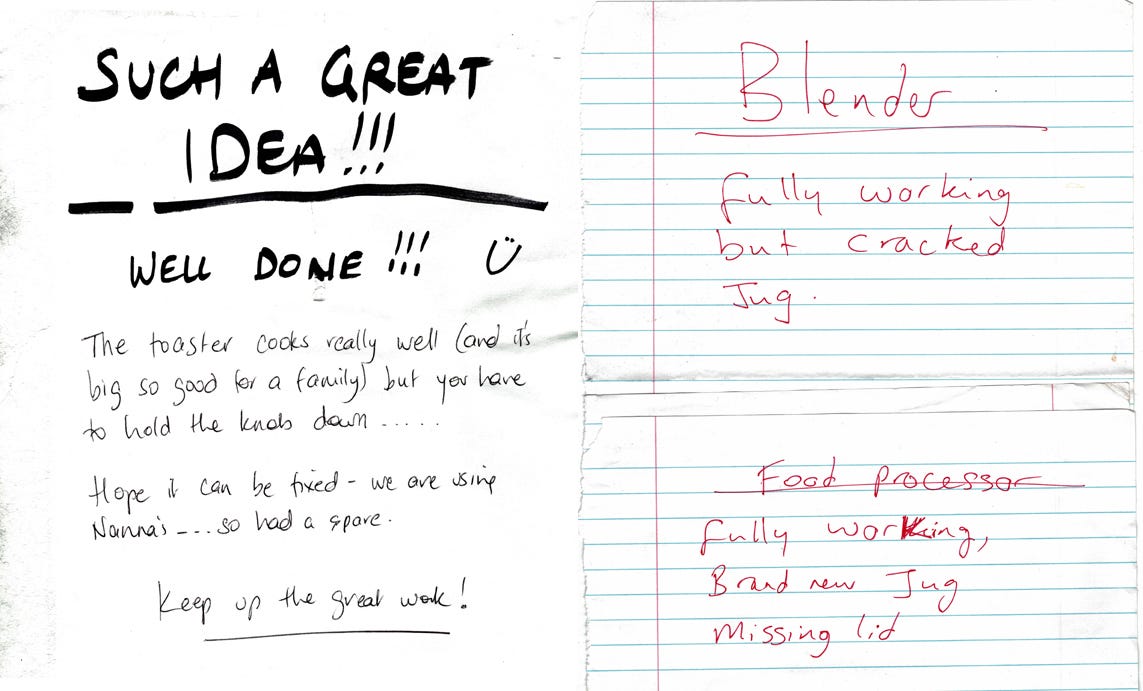 SUCH A GREAT
IDEA!!!
WELL DONE!!!
The toaster cooks really well (and it's
big so good for a family) but you have
to hold the knob down .....
Hope it can be fixed - we are using
Nanna's ---- so had a spare.
Keep up the great work!
Blender
fully working
but cracked
Jug.
Food processor
fully working,
Brand new Jug
Missing lid